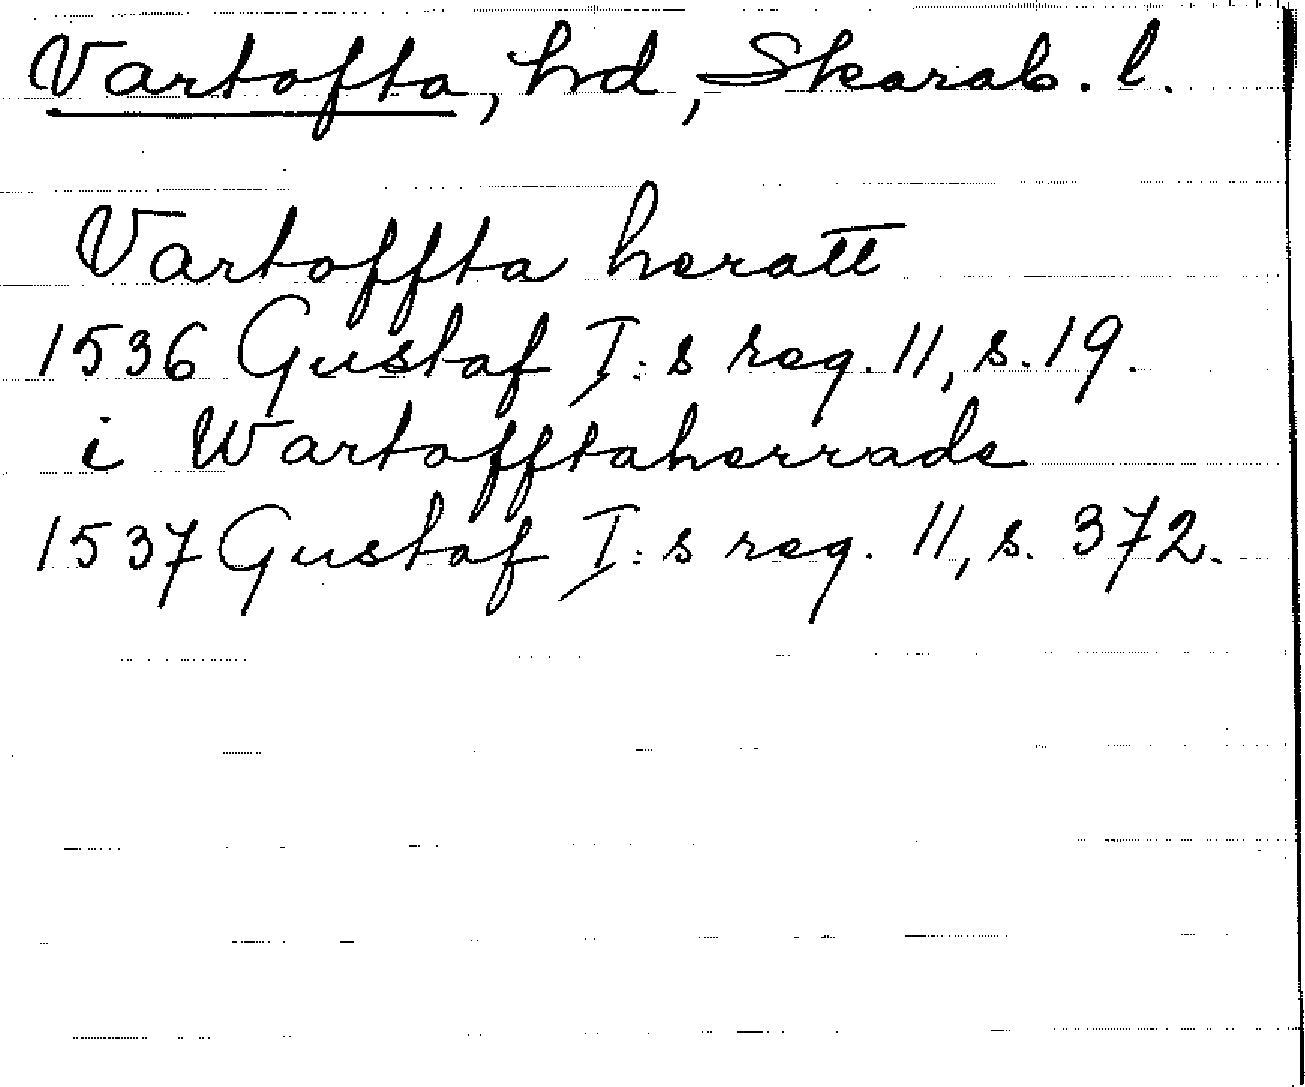 Vartofta, hd, Skarab. l.
Vartoffta heratt
1536 Gustaf I:s reg. 11, s. 19.
i Wartofftaherrade
1537 Gustaf I:s reg. 11, s. 372.